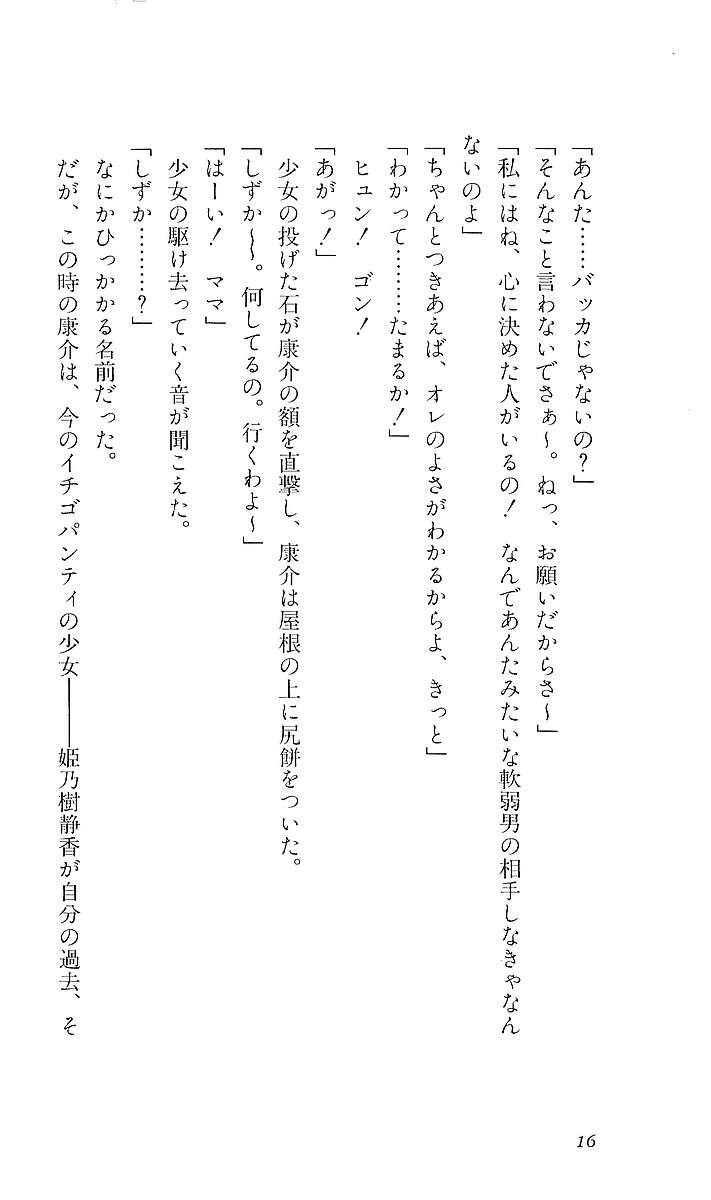 「あんた……バッカじゃないの？」
「そんなこと言わないでさぁ〜。ねっ、お願いだからさ〜」
「私にはね、心に決めた人がいるの！　なんであんたみたいな軟弱男の相手しなきゃなん
ないのよ」
「ちゃんとつきあえば、オレのよさがわかるからよ、きっと」
「わかって………たまるか！」
　ヒュン！　ゴン！
「あがっ！」
　少女の投げた石が康介の額を直撃し、康介は屋根の上に尻餅をついた。
「しずか〜〜。何してるの。行くわよ〜」
「はーい！　ママ」
　少女の駆け去っていく音が聞こえた。
「しずか………？」
　なにかひっかかる名前だった。
　だが、この時の康介は、今のイチゴパンティの少女――姫乃樹静香が自分の過去、そ
16